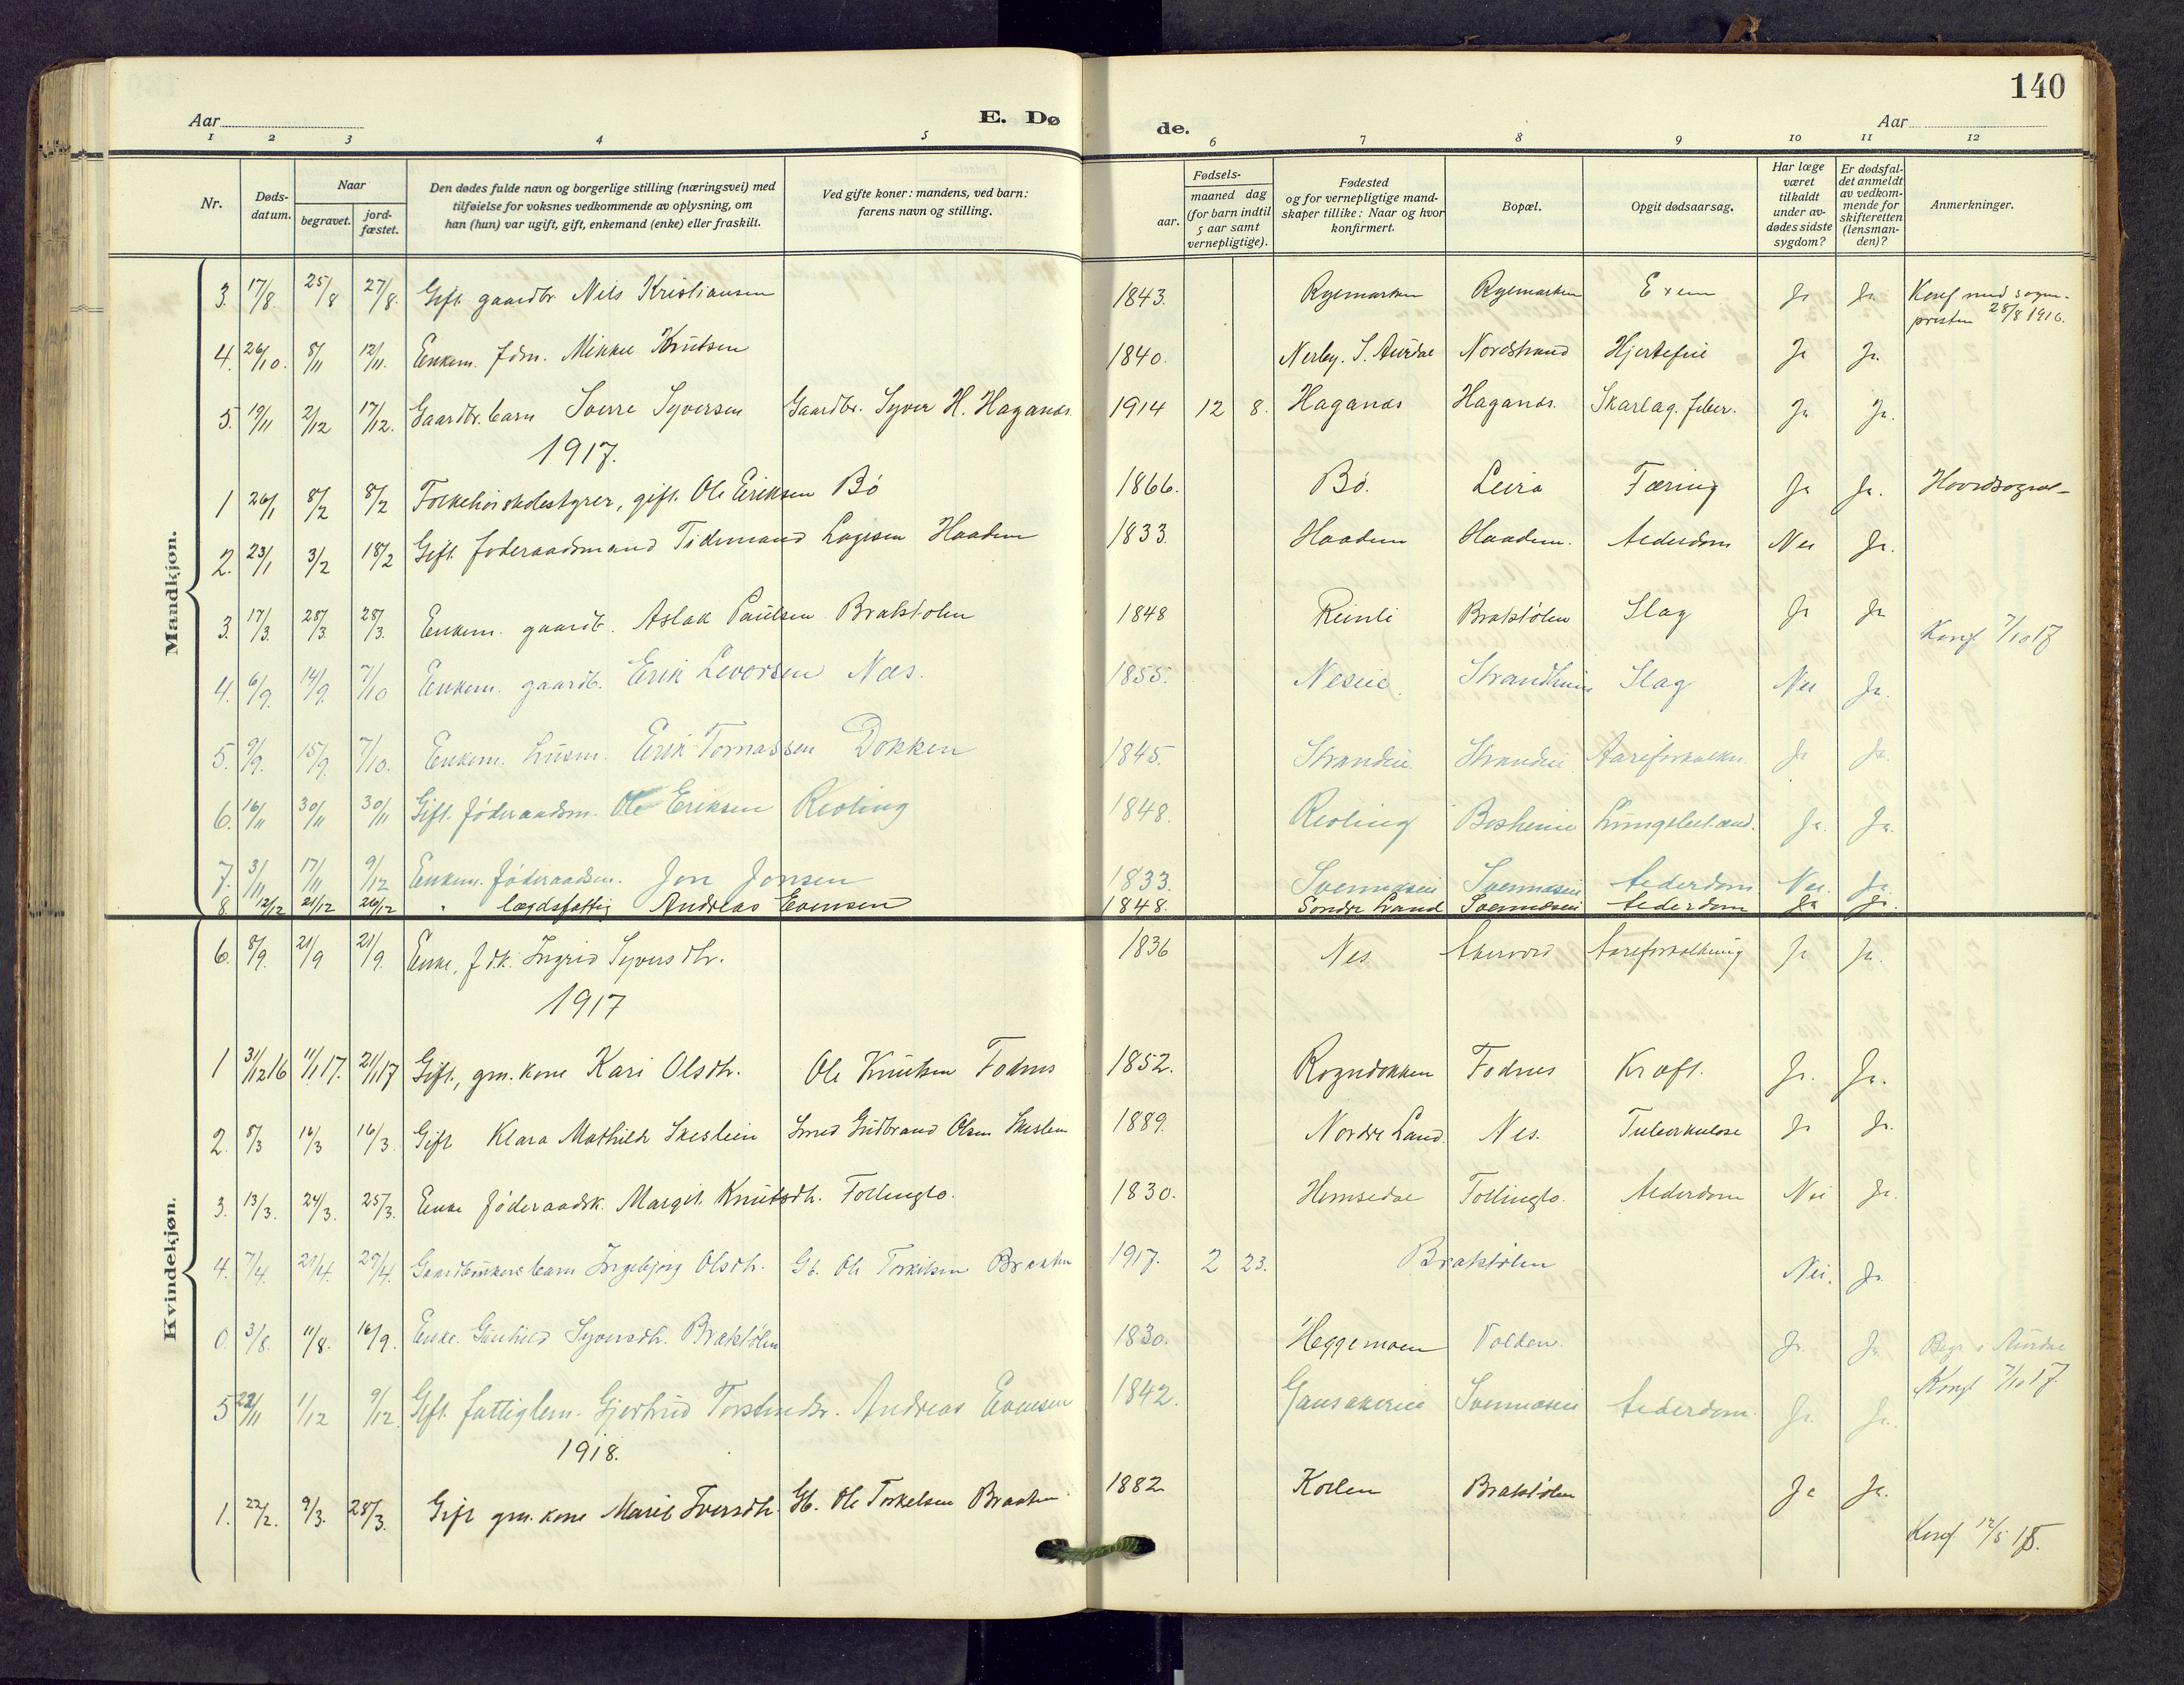 140
Aar
E. Dø
de.
Aar
1 2 3 4 5 6 7 8 9 10 11 12
Nr.
Døds-datum.
Naar
begravet.
jord-fæstet.
Den dødes fulde navn og borgerlige stilling (næringsvei) med
tilføielse for voksnes vedkommende av oplysning, om
han (hun) var ugift, gift, enkemand (enke) eller fraskilt.
Ved gifte koner: mandens, ved barn:
farens navn og stilling.
Fødsels-
aar.
maaned dag
(for barn indtil
5 aar samt
vernepligtige).
Fødested
og for vernepligtige mand-
skaper tillike: Naar og hvor
konfirmert.
Bopæl.
Opgit dødsaarsag.
Har læge
været
tilkaldt
under av-
dødes sidste
sygdom?
Er dødsfal-
det anmeldt
av vedkom-
mende for
skifteretten
(lensman-
den)?
Anmerkninger.
Mandkjøn.
3. 17/8. 25/8 27/8. Gift gaardbr. Nils Kristiansen 1843. Ryemarken Ryemarken Ja Ja Konf. med sogne-
presten 28/8 1916.
4. 26/10. 8/11 12/11. Enkem. fdm. Mikkel Knutsen 1840. Nerby. S. Aurdal Nordstrand Hjertefeil Ja Ja.
5. 19/11 2/12 17/12. Gaardbr. barn Sverre Syversen Gaardbr. Syver H. Haganæs. 1914 12 8. Haganæs Haganæs. Skarlag. feber. Ja Ja.
1917.
1 26/1 8/2 8/2 Folkehøiskolestyrer, gift. Ole Eriksen Bø 1866. Bø. Leira Tæring Ja Ja.
2. 23/1 3/2 18/2 Gift føderaadsmand Tidemand Lagesen Haadem 1833. Haadem Haadem. Alderdom Nei Ja.
3. 17/3. 28/3. 28/3. Enkem. gaardb. Aslak Paulsen Brakstølen 1848 Reinli Brakstølen Slag Ja Ja
4. 6/9. 14/9. 7/10 Enkem. gaardb. Erik Levorsen Næs. 1855. Neseie. Strandheim Slag Nei Ja. Konf. 7/10 17
5. 9/9. 15/9. 7/10. Enkem. husm. Erik Tomassen Dokken 1845. Strandeie. Strandeie. Aareforkalkn. Ja Ja.
6. 16/11 30/11 30/11 Gift. føderaadsm. Ole Eriksen Reoling 1848. Reoling Lungebetænd. Ja. Ja.
7. 3/11 17/11 9/12 Enkem. føderaadsm. Jon Jonsen 1833. Svennæseie Svennæseie Alderdom Nei. Ja
8 12/12 21/12 26/12 " lægdsfattig Andreas Evensen 1848. Søndre Land Svennæseie Alderdom Ja Ja.
Kvindekjøn.
6. 8/9. 21/9 21/9. Enke, fdk. Ingrid Syversdtr. 1836 Nes. Aareforkalkning Ja Ja.
1917
1 31/12 16 11/1 17. 21/1 17 Gift, gm. kone Kari Olsdtr. Ole Knutsen Fodnes 1852. Rogndokken Fodnes Kræft. Ja. Ja.
2. 8/3 16/3 16/3. Gift Klara Mathilde Skeslein Smed Gudbrand Olsen Skeslein 1889. Nordre Land. Nes. Tuberkulose Ja Ja.
3. 13/3. 24/3. 25/3. Enke føderaadsk. Margit Knutsdtr. Tollinglo. 1830. Hemsedal Tollinglo. Alderdom Nei Ja.
4. 7/4. 21/4. 29/4. Gaardbrukers barn Ingebjørg Olsdtr. Gb. Ole Torkelsen Braaten 1917. 2 23. Brakstølen Nei. Ja.
0. 3/8. 11/8. 16/9. Enke. Gunhild Syversdtr. Brakstølen 1830. Heggemoen Volden. Ja. Ja. Begr. i Aurdal
Konf. 7/10 17.
5 22/11 1/12 9/12. Gift. fattiglem. Gjertrud Torstendtr. Andreas Evensen 1842. Gausakereie Svennæseie Alderdom. Ja. Ja.
1918.
1. 22/2. 9/3. 28/3. Gift gm. kone Marie Iversdtr. Gb. Ole Torkelsen Braaten 1882 Brakstølen Ja Ja.
Konf. 12/5 18.